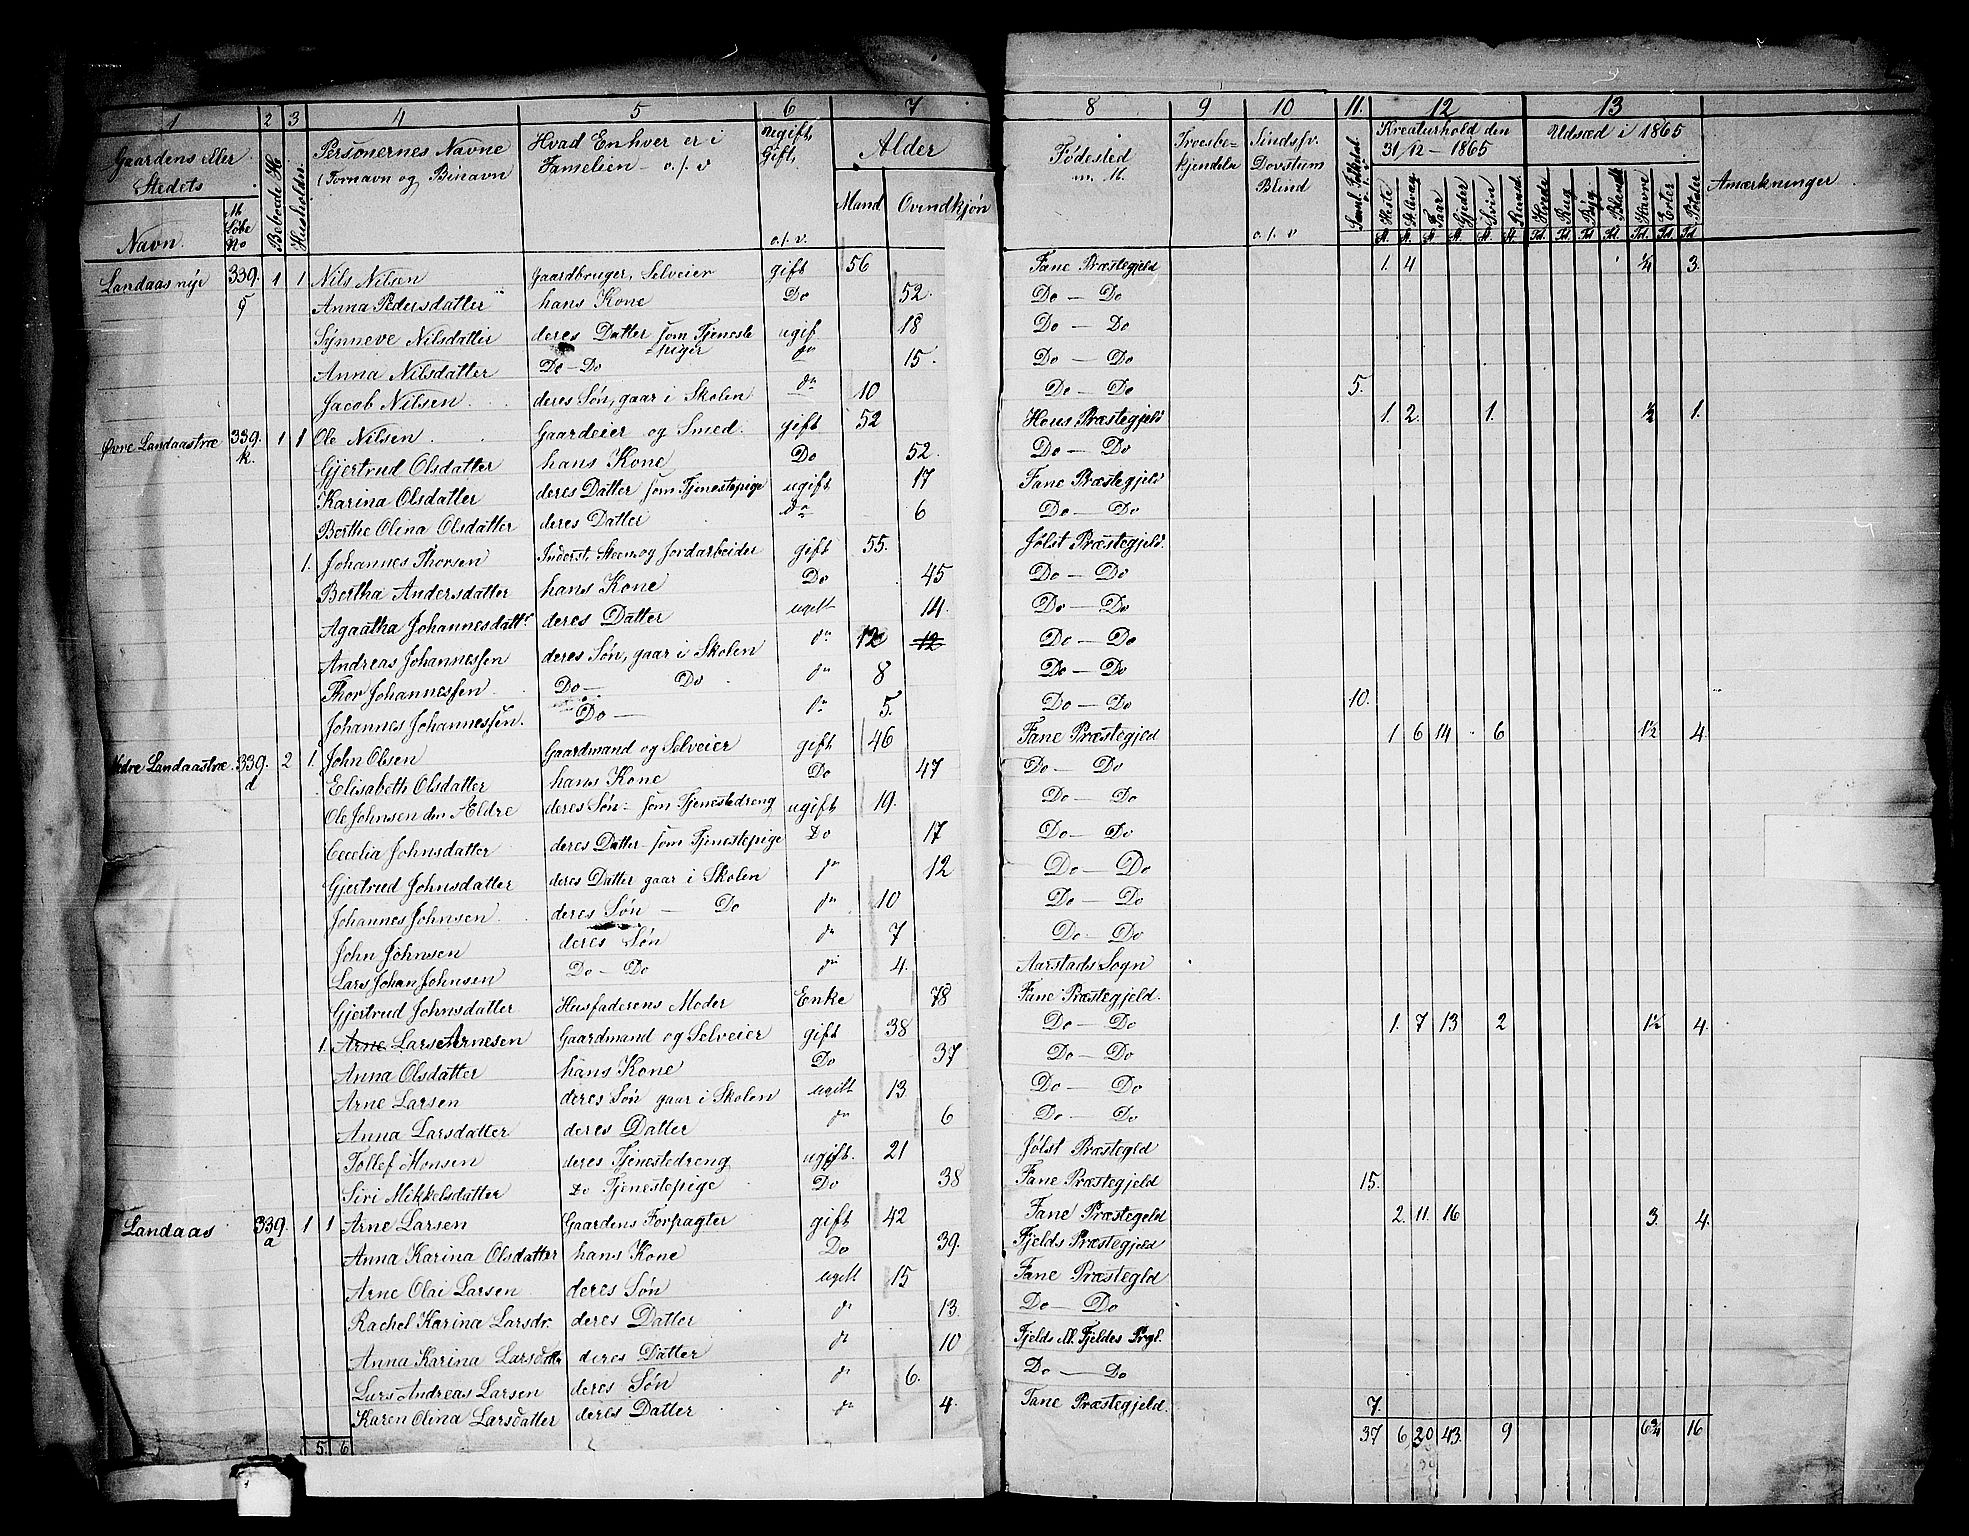 1 2 3 4 5 6 7 8 9 10 11. 12 13
Gaardens eller Stedets Navn. M Løbe No Beboede H. Husholdn. Personernes Navne (Fornavn og Binavn Hvad Enhver er i Famelien o.s.v ugift, Gift, o.s.v. Alder Mand Qvindkjøn Fødested m. M. Troesbekjendelse Sindsfv. Døvstum Blind o.s.v Saml. Folketal Kreaturhold den 31/12 - 1865 Heste St. Qvæg Faar Gjeder Svin Rensd. Udsæd i 1865 Hvede Rug Byg Bland Havre Erter Poteter Anmærkninger
Landaas nyr 339. 1 1 Nils Nilsen Gaardbruger, Selveier gift 56 Fane Præstegjeld 1. 4 ¼ 3.
Anna Pedersdatter hans Kone Do 52. Do - Do
Synneve Nilsdatter deres Datter som Tjeneste ugif 18 Do - Do
piger
Anna Nilsdatter Do - Do do 15. Do - Do
Jacob Nilsen deres Søn, gaar i Skolen do 10 Do - Do 5.
Øvre Landaastræ 339. k. 1 1 Ole Nilsen Gaardeier og Smed. gift 52 Hous Præstegjeld 1. 2. 1. ½ 1.
Gjertrud Olsdatter hans Kone Do 52. Do - Do
Karina Olsdatter deres Datter som Tjenestepige ugift 17 Fane Præstegjeld
Berthe Olina Olsdatter deres Datter do 6 Do - Do
1. Johannes Thorsen Inderst. Steen og Jordarbeider gift 55. Jølst Præstegjeld.
Bertha Andersdatter hans Kone Do 45 Do - Do
Agaatha Johannesdattr deres Datter ugift 14. Do - Do
Andreas Johannessen deres Søn, gaar i Skolen do 12 12 Do - Do
Thor Johannessen. Do - Do do 8 Do - Do
Johannes Johannessen. Do - do 5. Do - Do 10.
Nedre Landaastræ 339. d 2 1. John Olsen Gaardmand og Selveier gift 46 Fane Præstegjeld 1 6 14 6 1½ 4.
Elisabeth Olsdatter hans Kone Do 47 Do - Do
Ole Johnsen den Ældre deres Søn - som Tjenestedreng ugift 19. Do - Do
Cecelia Johnsdatter deres Datter - som Tjenestepige Do 17 Do - Do
Gjertrud Johnsdatter deres Datter gaar i Skolen do 12 Do - Do
Johannes Johnsen deres Søn - Do do 10 Do - Do
John Johnsen deres Søn do 7 Do - Do
Lars Johan Johnsen Do - Do do 4. Aarstads Sogn
Gjertrud Johnsdatter Husfaderens Moder Enke 78 Fane Præstegjeld.
1. Arne Lars Arnesen Gaardmand og Selveier gift 38 Do - Do 1. 7 13 2 1½ 4.
Anna Olsdatter hans Kone Do 37 Do - Do
Arne Larsen deres Søn gaar i Skolen ugift 13 Do - Do
Anna Larsdatter deres Datter do 6 Do - Do
Tollef Monsen deres Tjenestedreng ugift. 21 Jølst Præstegld
Siri Mikkelsdatter Do Tjenestepige Do 38 Fane Præstegjeld 15.
Landaas 339. a 1 1 Arne Larsen Gaardens Forpagter gift 42 Fane Præstegeld 2. 11. 16 3. 4.
Anna Karina Olsdatter hans Kone Do 39. Fjelds Præstegjeld
Arne Olai Larsen deres Søn ugift 15 Fane Præstegld
Rachel Karina Larsdr. deres Datter do 13. Do - Do
Anna Karina Larsdatter deres Datter do 10 Fjelds M. Fjeldes Prgl.
Lars Andreas Larsen deres Søn do 6. Do - Do
Karen Olina Larsdatter deres Datter do 4. Fane Præstegjeld. 7.
5. 6 37 6 20 43. 9 6¾ 16